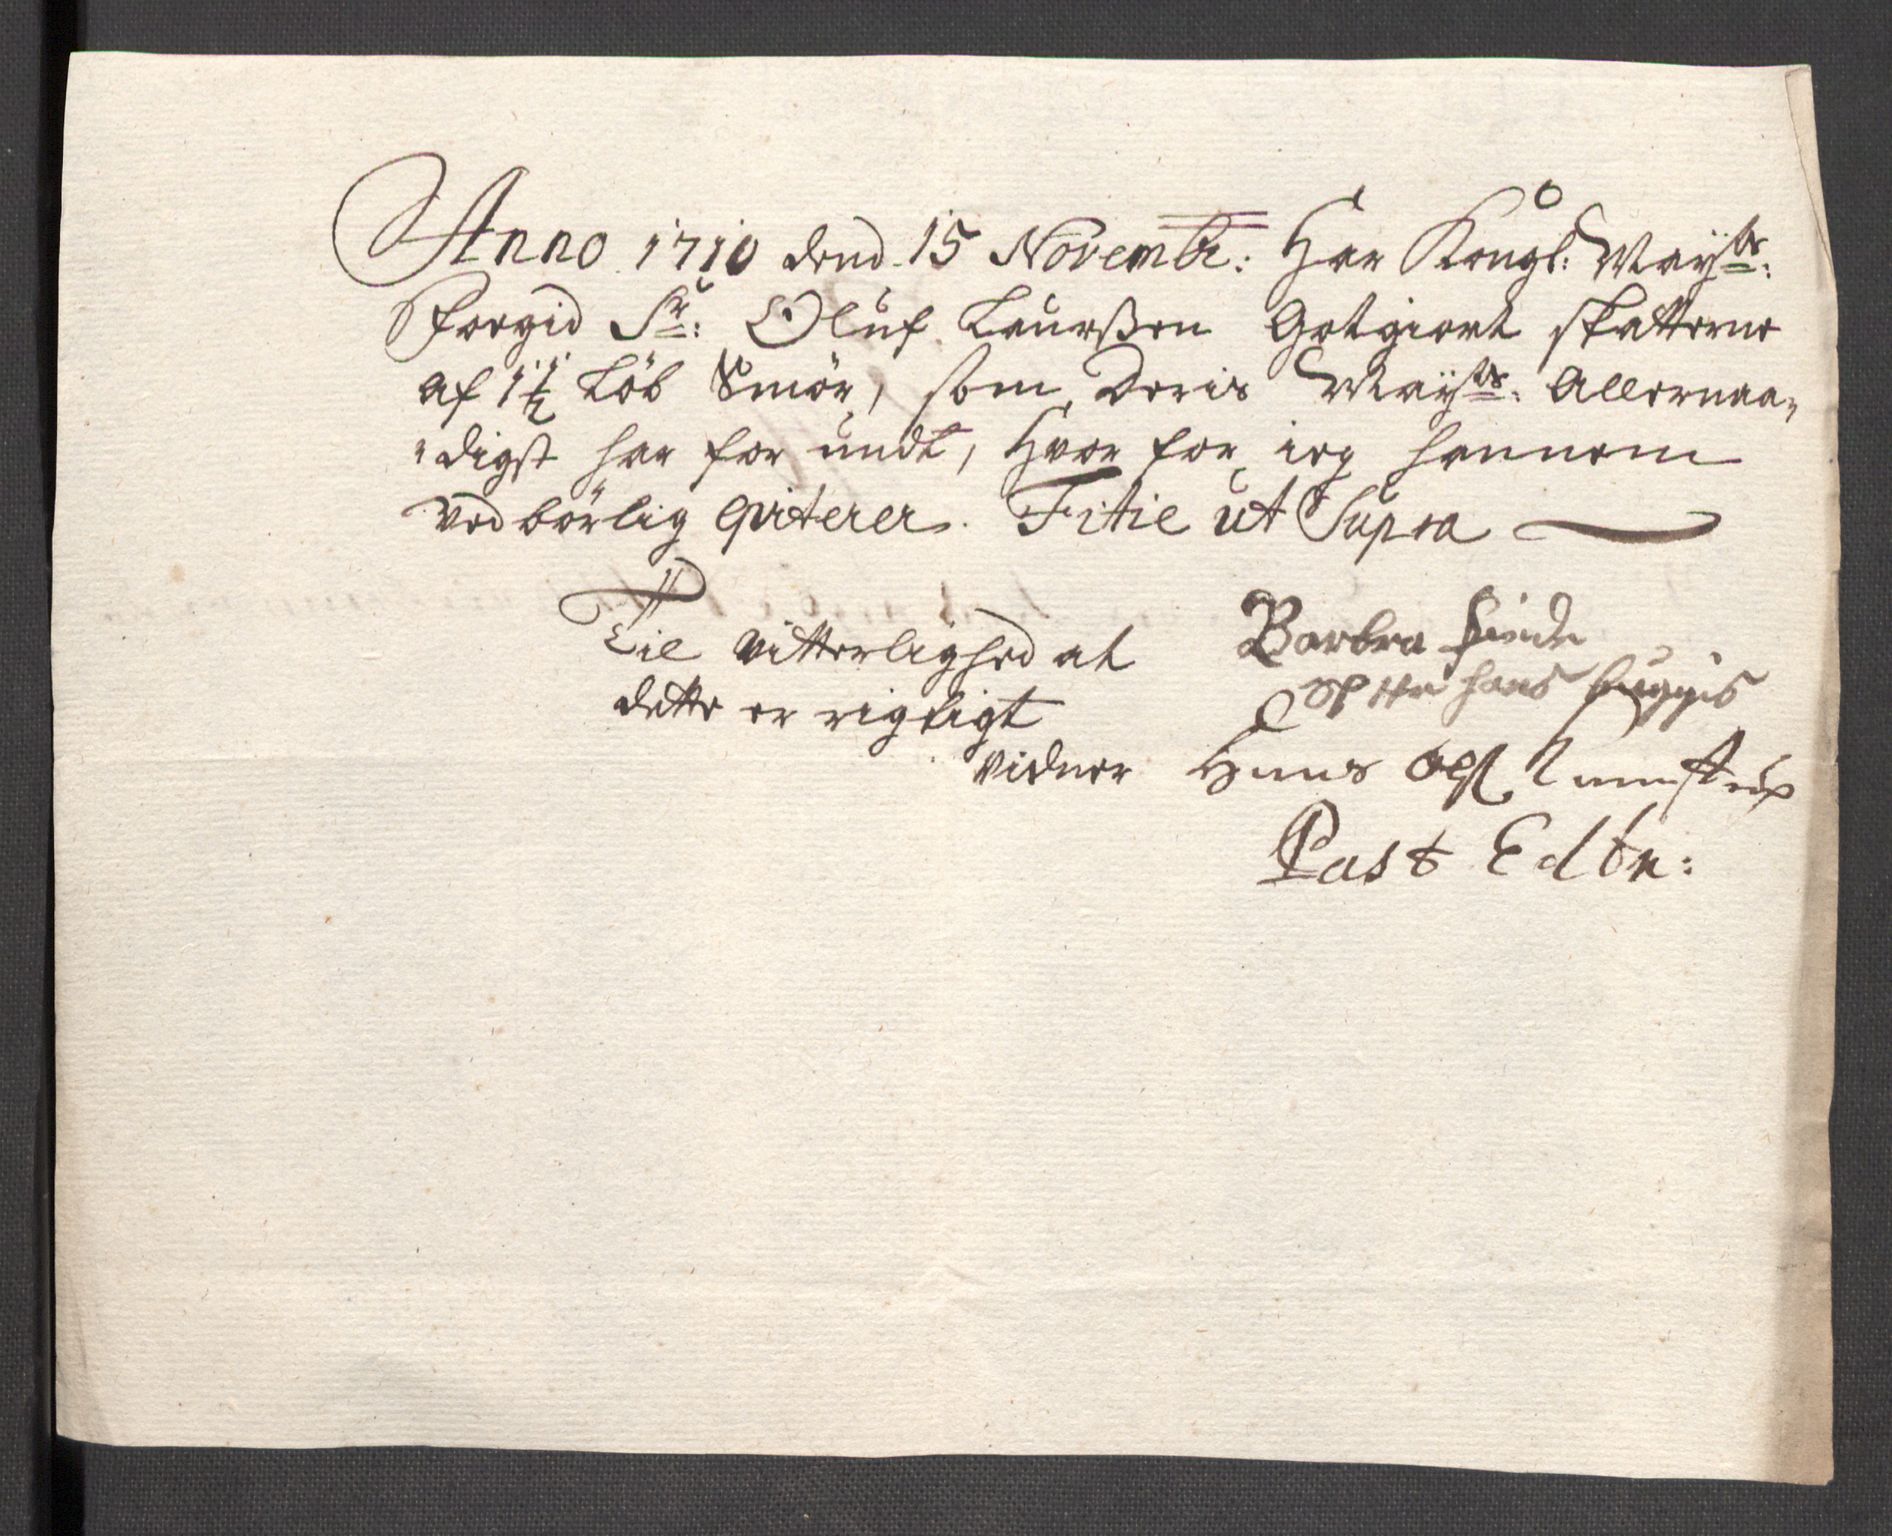 Anno 1710 dend 15 Novembr: Har Kongl: Mayts:
Foegid Sr: Oluf Laurßen Gotgiort skatterne
af 1½ Löb Smör, som Deris Mayts: Allernaa„
„digst har for undt, Hvor for ieg hannem
Ved börlig qviterer. Fitie ut Supra
Til Vitterlighed at
dette er rigtigt
Vidner
Barbra
effter hans
Hans Ols
Past Edtn: